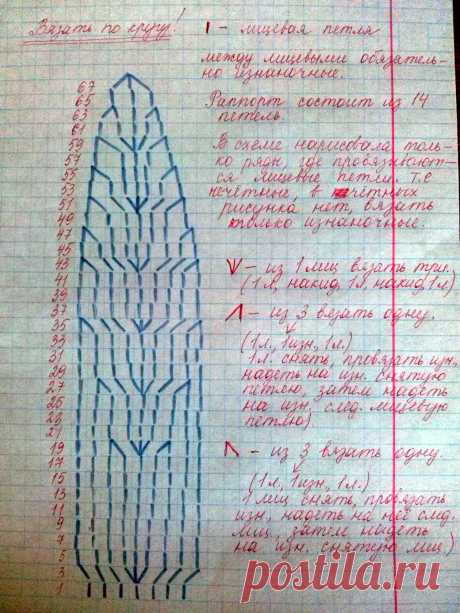 Вязать по кругу!
| - лицевая петля
между лицевыми обязатель-
но изнаночные.
Раппорт состоит из 14
петель.
В схеме нарисовала толь-
ко ряды, где провязывают-
ся лицевые петли т.е
нечётные, в чётных
рисунка нет, вязать
только изнаночные.
- из 1 лиц вязать три.
(1л, накид, 1л, накид, 1л)
- из 3 вязать одну.
(1л., 1изн., 1л.)
1л. снять, провязать изн.,
надеть на изн. снятую
петлю, затем надеть
на изн. след. лицевую
петлю)
- из 3 вязать одну.
(1л., 1изн., 1л.)
1 лиц снять, провязать
изн., надеть на неё след.
лиц., затем надеть
на изн. снятую лиц)
67
65
63
61
59
57
55
53
51
49
47
45
43
41
39
37
35
33
31
29
27
25
23
21
19
17
15
13
11
9
7
5
3
1
postila.ru